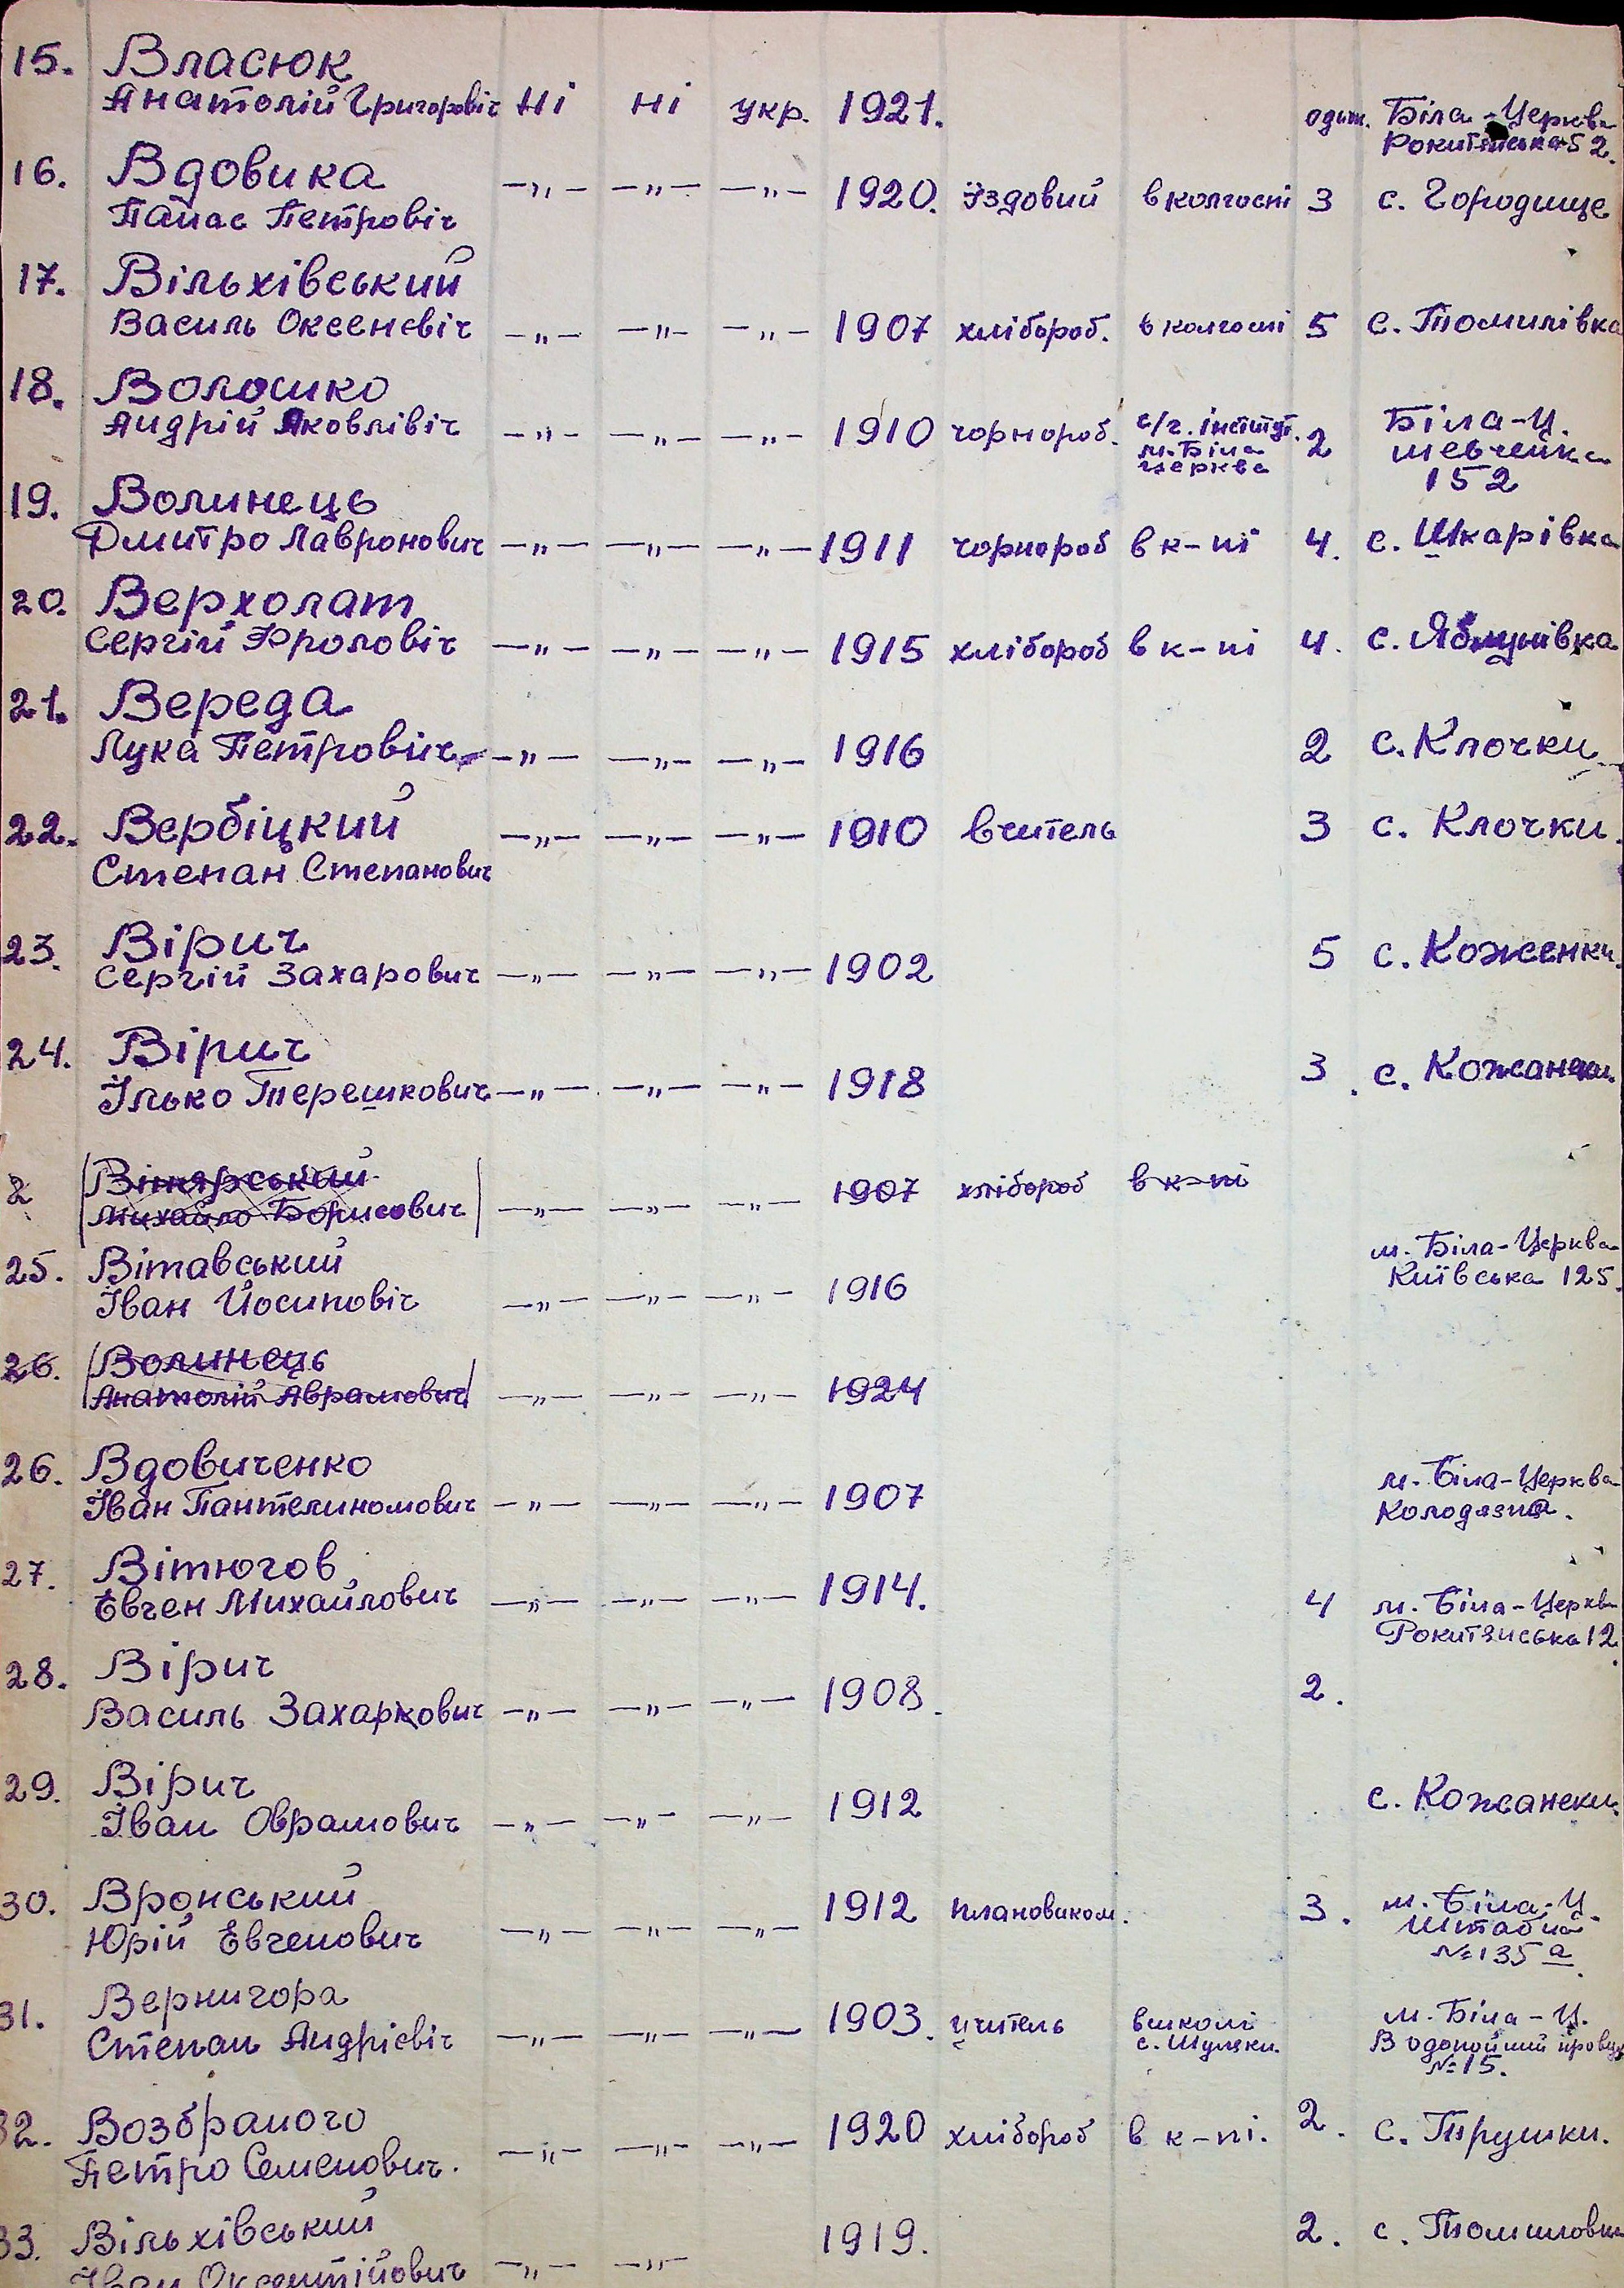 15. Власюк
Анатолій Григоровіч Ні ні укр. 1921. один. Біла-Церква
Рокитянська 52.
16. Вдовика
—„— —„— —„— 1920. їздовий в колгоспі 3 с. Городище
Панас Петровіч
17. Вільхівський
Василь Оксенєвіч —„— —„— —„— 1907 хлібороб. в колгоспі 5 с. Томилівка
18. Волошко
Андрій Яковлівіч —„— —„— —„— 1910 чорнороб. с/г. інститут. м. Біла церква 2 Біла-Ц. шевченка 152
19. Волинець
Дмитро Лавронович —„— —„— —„— 1911 чорнороб в к-пі 4. с. Шкарівка
20. Верхолат
Сергій Фролович —„— —„— —„— 1915 хлібороб в к-пі 4. с. Яблунівка
21. Вереда
Лука Петровіч —„— —„— —„— 1916 2 с. Клочки
22. Вербіцкий —„— —„— —„— 1910 вчитель 3 с. Клочки.
Степан Степанович
23. Вірич
Сергій Захарович —„— —„— —„— 1902 5 с. Коженки.
24. Вірич
Ілько Терешкович —„— —„— —„— 1918 3. с. Кожанки
2 Вінярський
Михайло Борисович —„— —„— —„— 1907 хлібороб в к-пі
25. Вітавський м. Біла-Церква
Іван Йосиповіч —„— —„— —„— 1916 Київська 125.
26. Волинець
Анатолій Аврамович —„— —„— —„— 1924
26. Вдовиченко м. Біла-Церква
Іван Пантелиномович —„— —„— —„— 1907 Колодязна.
27. Вітюгов
Евген Михайлович —„— —„— —„— 1914. 4 м. Біла-Церкв
Рокитянська 12.
28. Вірич
Василь Захаркович —„— —„— —„— 1908. 2.
29. Вірич
Іван Оврамович —„— —„— —„— 1912 с. Кожански.
30. Вронський 1912 плановиком. 3. м. Біла-Ц.
Юрій Евгенович —„— —„— —„— Штабна
№135 а.
31. Вернигора 1903. учитель в школі м. Біла-Ц.
Степан Андрієвіч —„— —„— —„— с. Шулєки. Водопойний провул
№15.
32. Возбраного 1920 хлібороб в к-пі. 2. с. Трушки.
Петро Семенович. —„— —„— —„—
33. Вільхівський 1919. 2. с. Томиловка
Іван Оксентійович —„— —„—